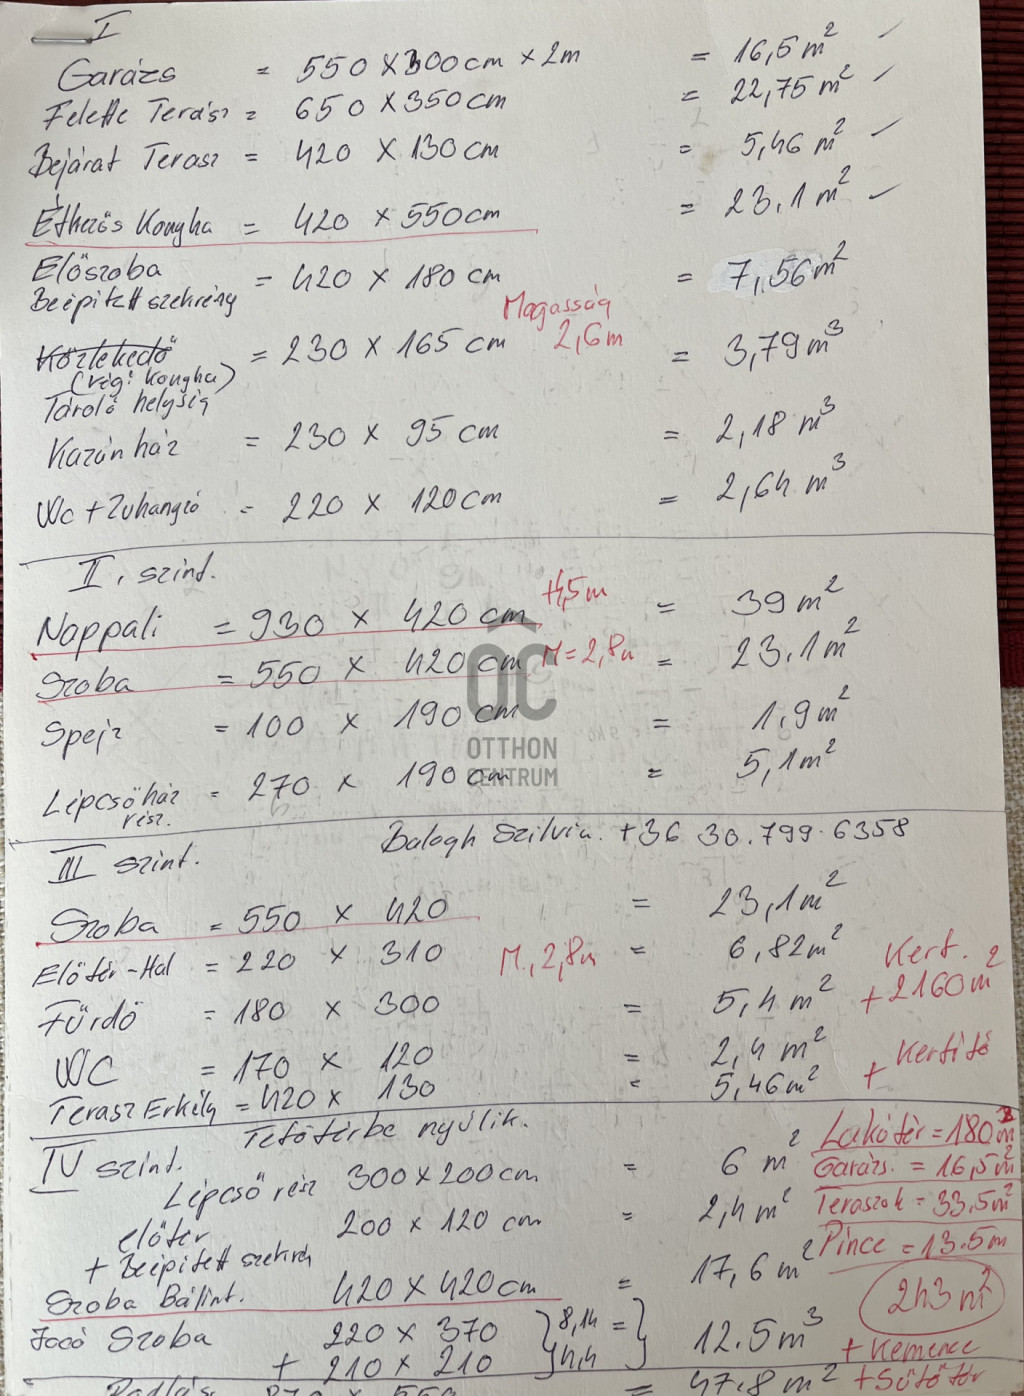 I
Garázs = 550 x 300 cm x 2m = 16,5 m²
Felette Terasz = 650 x 350 cm = 22,75 m²
Bejárat Terasz = 420 x 130 cm = 5,46 m²
Étkezős Konyha = 420 x 550 cm = 23,1 m²
Előszoba = 420 x 180 cm = 7,56 m²
Beépitett szekrény
Magasság
2,6m
Közlekedő = 230 x 165 cm = 3,79 m³
(rég: konyha)
Tároló helység
Kazánház = 230 x 95 cm = 2,18 m³
Wc + Zuhanyzó = 220 x 120 cm = 2,64 m³
II. szint.
Nappali = 930 x 420 cm +4,5m = 39 m²
Szoba = 550 x 420 cm M=2,8m = 23,1 m²
Spejz = 100 x 190 cm = 1,9 m²
Lépcsőház = 270 x 190 cm = 5,1 m²
rész.
OC
OTTHON
CENTRUM
Balogh Szilvia. +36 30.799.6358
III szint.
Szoba = 550 x 420 = 23,1 m²
Előtér-Hal = 220 x 310 M. 2,8m = 6,82 m²
Kert.
+ 2160 m²
Fürdő = 180 x 300 = 5,4 m²
WC = 170 x 120 = 2,4 m²
+ Kertitó
Terasz Erkély = 420 x 130 = 5,46 m²
Tetőtérbe nyúlik.
IV szint.
Lépcső rész 300 x 200 cm = 6 m²
előtér 200 x 120 cm = 2,4 m²
+ Beépitett szekrény
Szoba Bálint. 420 x 420 cm = 17,6 m²
Lakótér = 180 m²
Garázs. = 16,5 m²
Teraszok = 33,5 m²
Pince = 13.5 m
243 m²
Szoba 220 x 370 } 8,14 = } 12.5 m³
+ 210 x 210 } 4,4
+ Kemence
+ Sütőtér
Padlás 870 x 550 = 47.8 m²